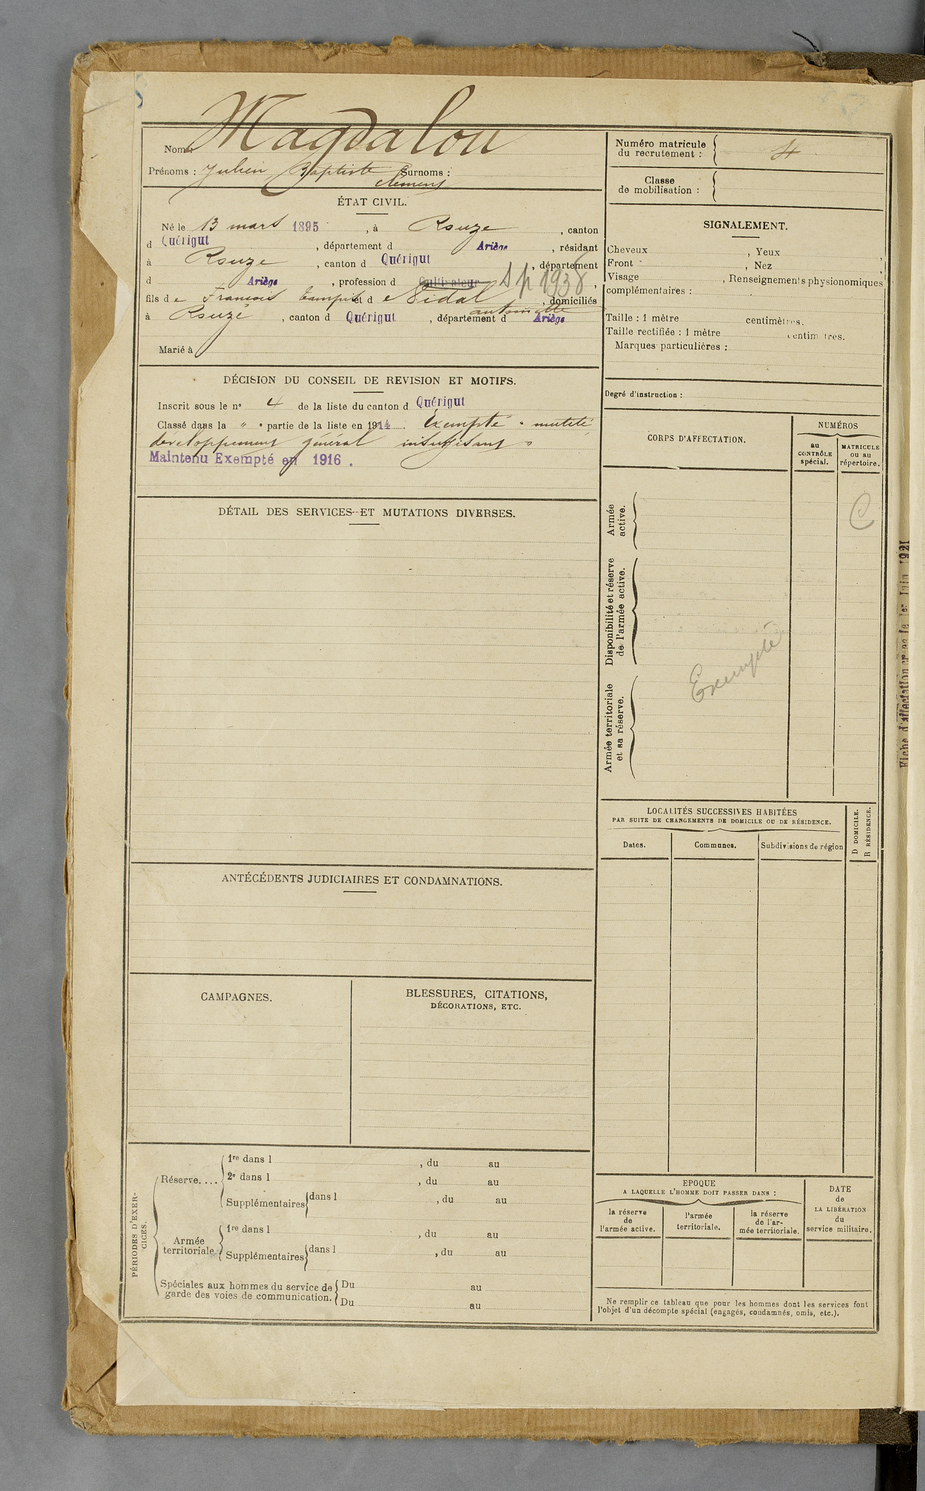 Nom : Magdalou
Prénoms : Julien Baptiste Surnoms :
clément
ÉTAT CIVIL.
Né le 13 mars 1895, à Rouze, canton
d Quérigut, département d Ariège, résidant
à Rouze, canton d Quérigut, département
d Ariège, profession d Cultivateur Sp 1938,
fils de François et de Vidal, domiciliés
antoinette
à Rouze, canton d Quérigut, département d Ariège
Marié à
DÉCISION DU CONSEIL DE REVISION ET MOTIFS.
Inscrit sous le n° 4 de la liste du canton d Quérigut
Classé dans la " " partie de la liste en 1914. Exempté " mutité,
developpement général insuffisant"
Maintenu Exempté en 1916.
DÉTAIL DES SERVICES ET MUTATIONS DIVERSES.
ANTÉCÉDENTS JUDICIAIRES ET CONDAMNATIONS.
CAMPAGNES.
BLESSURES, CITATIONS,
DÉCORATIONS, ETC.
PÉRIODES D'EXER-
CICES.
Réserve....
1re dans l , du au
2e dans l , du au
Supplémentaires dans l , du au
Armée
territoriale
1re dans l , du au
Supplémentaires dans l , du au
Spéciales aux hommes du service de
garde des voies de communication.
Du au
Du au
Numéro matricule
du recrutement : 4
Classe
de mobilisation :
SIGNALEMENT.
Cheveux , Yeux
Front , Nez
Visage , Renseignements physionomiques
complémentaires :
Taille : 1 mètre centimètres.
Taille rectifiée : 1 mètre centimètres.
Marques particulières :
Degré d'instruction :
CORPS D'AFFECTATION.
NUMÉROS
au
CONTRÔLE
spécial.
MATRICULE
ou au
répertoire.
C
Armée
active.
Disponibilité et réserve
de l'armée active.
Armée territoriale
et sa réserve.
Exempté
LOCALITÉS SUCCESSIVES HABITÉES
PAR SUITE DE CHANGEMENTS DE DOMICILE OU DE RÉSIDENCE.
Dates. Communes. Subdivisions de région
D DOMICILE.
R RÉSIDENCE.
EPOQUE
A LAQUELLE L'HOMME DOIT PASSER DANS :
la réserve
de
l'armée active.
l'armée
territoriale.
la réserve
de l'ar-
mée territoriale.
DATE
de
LA LIBÉRATION
du
service militaire.
Ne remplir ce tableau que pour les hommes dont les services font
l'objet d'un décompte spécial (engagés, condamnés, omis, etc.).